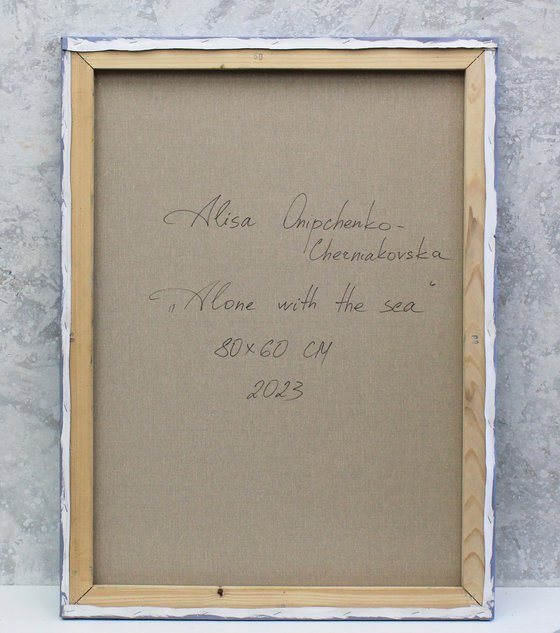 60
Alisa Onipchenko-
Cherniakovska
„Alone with the sea“
80x60 CM
2023